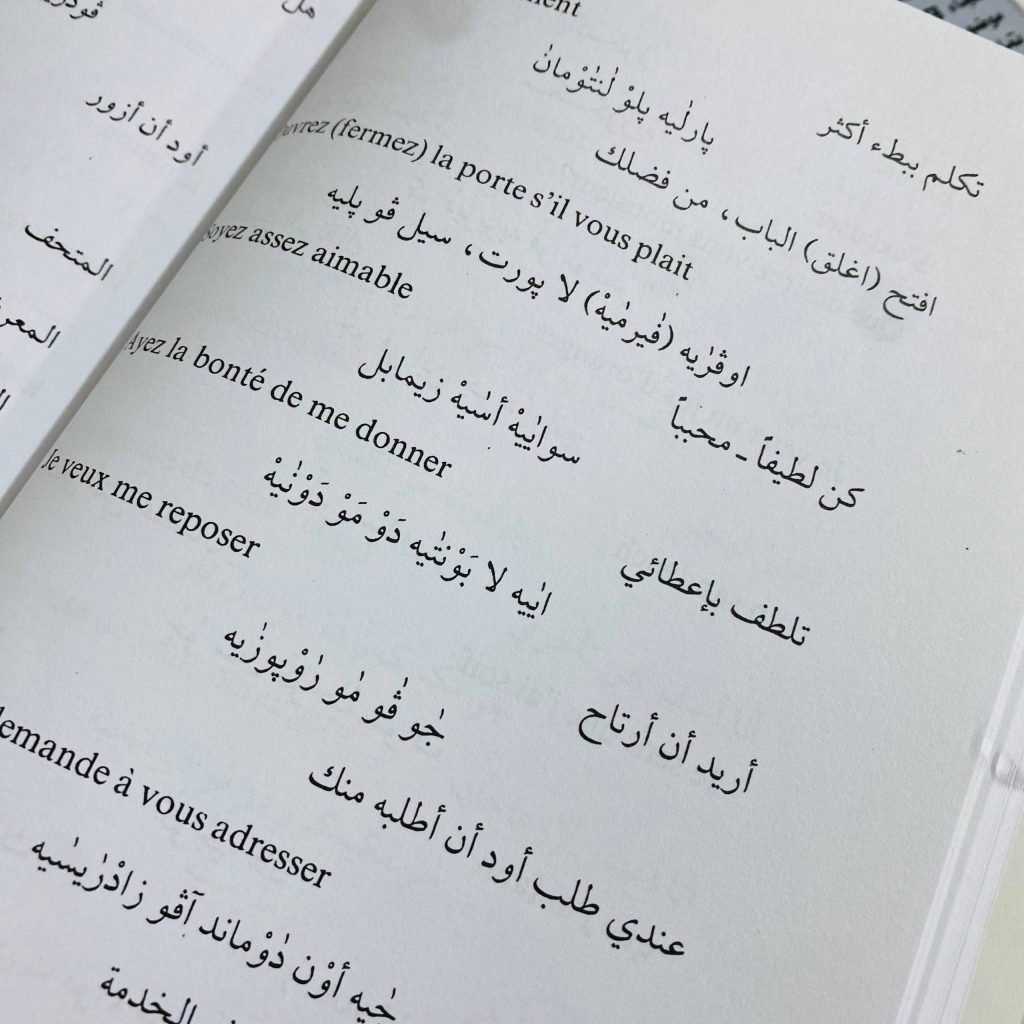 هل
أود أن أزور
المتحف
تكلم ببطء أكثر
پارلٰيه پلوْ لنٰتوْمانٰ
(fermez) la porte s'il vous plait
افتح (اغلق) الباب، من فضلك
اوڤرٰيه (ڤيرمٰيهْ) لا پورت، سيل ڤو پليه
Soyez assez aimable
كن لطيفاً ـ محبباً
سوايٰيهْ أسٰيهْ زيمابل
Ayez la bonté de me donner
تلطف بإعطائي
ايٰيه لا بَوْنتٰيه دَوْ مَوْ دَوْنٰيهْ
Je veux me reposer
أريد أن أرتاح
جٰو ڤٰو مٰو رٰوْپوزٰيه
demande à vous adresser
عندي طلب أود أن أطلبه منك
جٰيه أوْن دٰوْماند آڤو زادْرٰيسٰيه
الخدمة